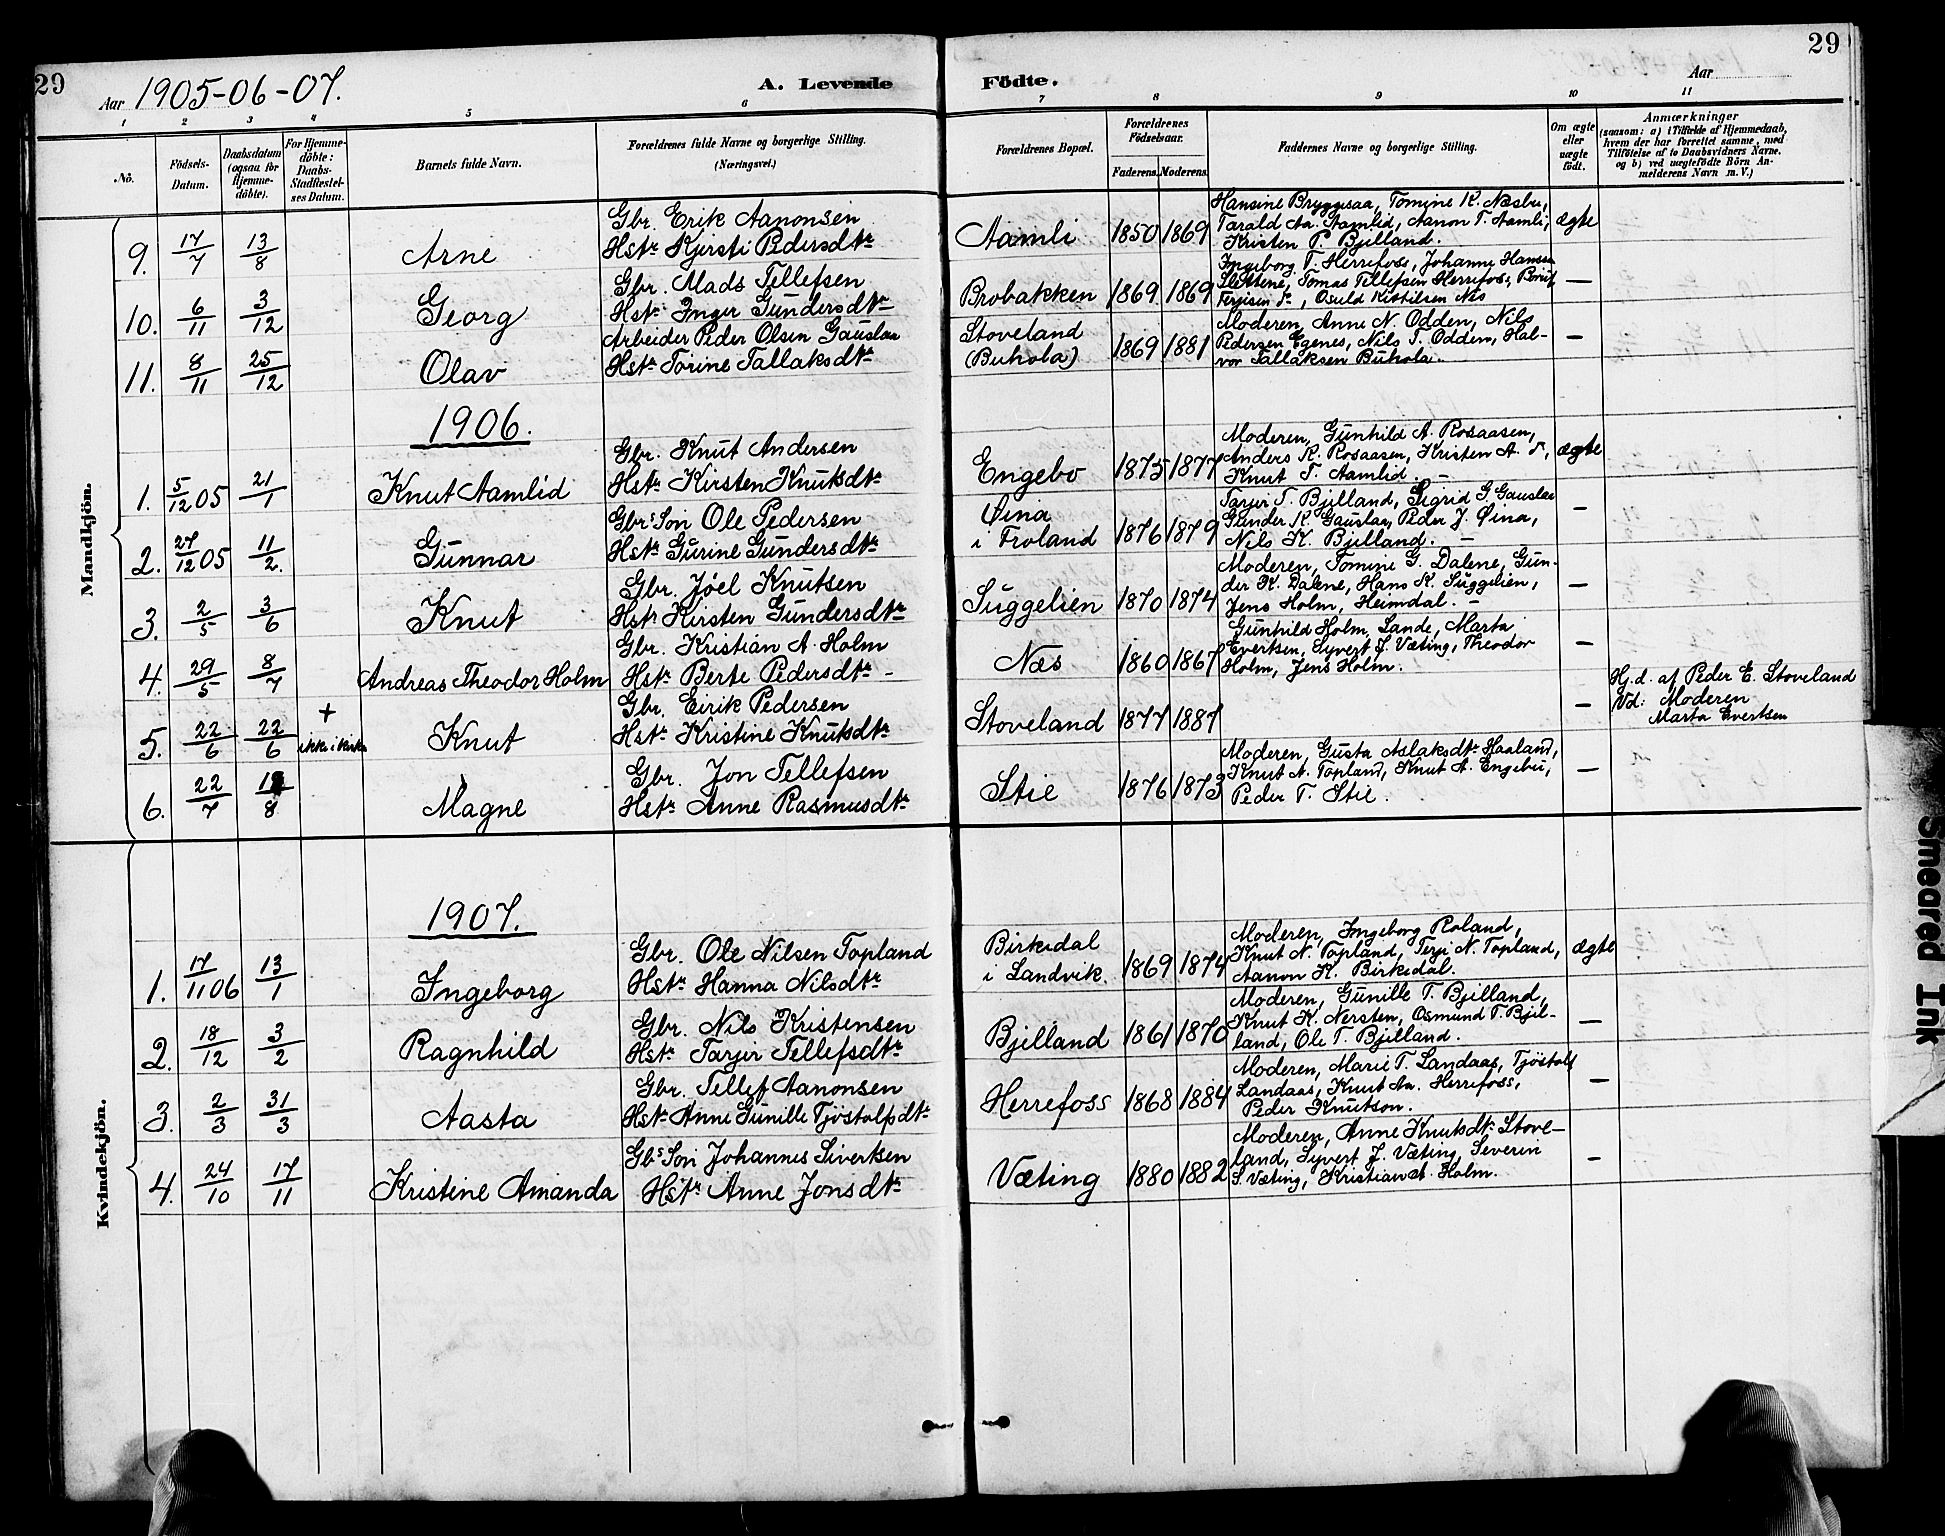 29
Aar 1905-06-07.
A. Levende Födte.
Aar
29
1 2 3 4 5 6 7 8 9 10 11
Nô.
Födsels-Datum.
Daabsdatum (ogsaa for Hjemme-döbte).
For Hjemme-döbte: Daabs-Stadfæstel-ses Datum.
Barnets fulde Navn.
Forældrenes fulde Navne og borgerlige Stilling.
(Næringsvei.)
Forældrenes Bopæl.
Forældrenes Födselsaar.
Faderens. Moderens.
Faddernes Navne og borgerlige Stilling.
Om ægte eller uægte födt.
Anmærkninger
(saasom: a) i Tilfælde af Hjemmedaab,
hvem der har forrettet samme, med
Tilföielse af to Daabsvidners Navne.
og b) ved uægtefödte Börn An-
melderens Navn m. V.)
Mandkjön.
9. 17/7 13/8 Arne
Gbr. Erik Aanonsen
Hstr Kjersti Pedersdtr
Aamli 1850 1869
Hansine Bryggesaa, Tomine K. Næsbu,
Tarald Aa. Aamlid, Aanon T. Aamli,
Kristen P. Bjelland.
ægte
10. 6/11 3/12 Georg
Gbr. Mads Tellefsen
Hstr Inger Gundersdtr
Brobakken 1869 1869
Ingeborg T. Herrefoss, Johanne Hansen
Slettene, Tomas Tellefsen Herrefoss,
Terjisen do, Osuld Kittilsen Næs
—
11. 8/11 25/12 Olav
Arbeider Peder Olsen Gauslaa
Hstr Torine Tallaksdtr
Stoveland
(Buhola) 1869 1881
Moderen, Anne N. Odden, Nils
Pedersen Egenes, Nils T. Odden, Hal-
vor Tallaksen Buhola.
—
1906.
1. 5/12 05 21/1 Knut Aamlid
Gbr. Knut Andersen
Hstr Kirsten Knutsdtr
Engebo 1875 1877
Moderen, Gunhild A. Rosaasen,
Anders K. Rosaasen, Kristen A. do,
Knut T. Aamlid. —
ægte
2. 27/12 05 11/2. Gunnar
Gbrs Søn Ole Pedersen
Hstr Gurine Gundersdtr
Øina
i Froland 1876 1879
Tarjer T. Bjelland, Sigrid G. Gauslaa
Gunder K. Gauslaa, Peder J. Øina,
Nils K. Bjelland. —
—
3. 2/5 3/6 Knut
Gbr. Joel Knutsen
Hstr Kirsten Gundersdtr
Suggelien 1870 1874
Moderen, Tomine G. Dalene, Gun-
der K. Dalene, Hans K. Suggelien,
Jens Holm, Heimdal. —
—
4. 29/5 8/7 Andreas Theodor Holm
Gbr. Kristian A. Holm
Hstr Berte Pedersdtr -
Næs 1860 1867
Gunhild Holm, Lande, Marta
Evertsen, Syvert J. Væting, Theodor
Holm, Jens Holm.
—
5. 22/6 22/6 + ikke i kirken Knut
Gbr. Eirik Pedersen
Hstr Kristine Knutsdtr
Stoveland 1877 1881
—
Hj.d. af Peder E. Stoveland
Vd: Moderen
Marta Evertsen
6. 22/7 /8 Magne
Gbr. Jon Tellefsen
Hstr Anne Rasmusdtr
Stie 1876 1873
Moderen, Gusta Aslaksdtr Haaland,
Knut N. Topland, Knut A. Engebu,
Peder T. Stie.
—
Kvindekjön.
1907.
1. 17/11 06 13/1 Ingeborg
Gbr. Ole Nilsen Topland
Hstr Hanna Nilsdtr
Birkedal
i Landvik. 1869 1874
Moderen, Ingeborg Roland,
Knut N. Topland, Terji N. Topland,
Aanon K. Birkedal.
ægte
2. 18/12 3/2 Ragnhild
Gbr. Nils Kristensen
Hstr Tarjer Tellefsdtr
Bjelland 1861 1870
Moderen, Gunille T. Bjelland,
Knut K. Nersten, Osmund T. Bjel-
land, Ole T. Bjelland.
—
3. 2/3 31/3 Aasta
Gbr. Tellef Aanonsen
Hstr Anne Gunille Tjostolfsdtr
Herrefoss 1868 1884
Moderen, Marie T. Landaas, Tjøstolf
Landaas, Knut Aa. Herrefoss,
Peder Knutson.
—
4. 24/10 17/11 Kristine Amanda
Gbs Søn Johannes Sivertsen
Hstr Anne Jonsdtr
Væting 1880 1882
Moderen, Anne Knutsdtr Stove-
land, Syvert J. Væting, Severin
S. Væting, Kristian A. Holm.
—
Smeared Ink